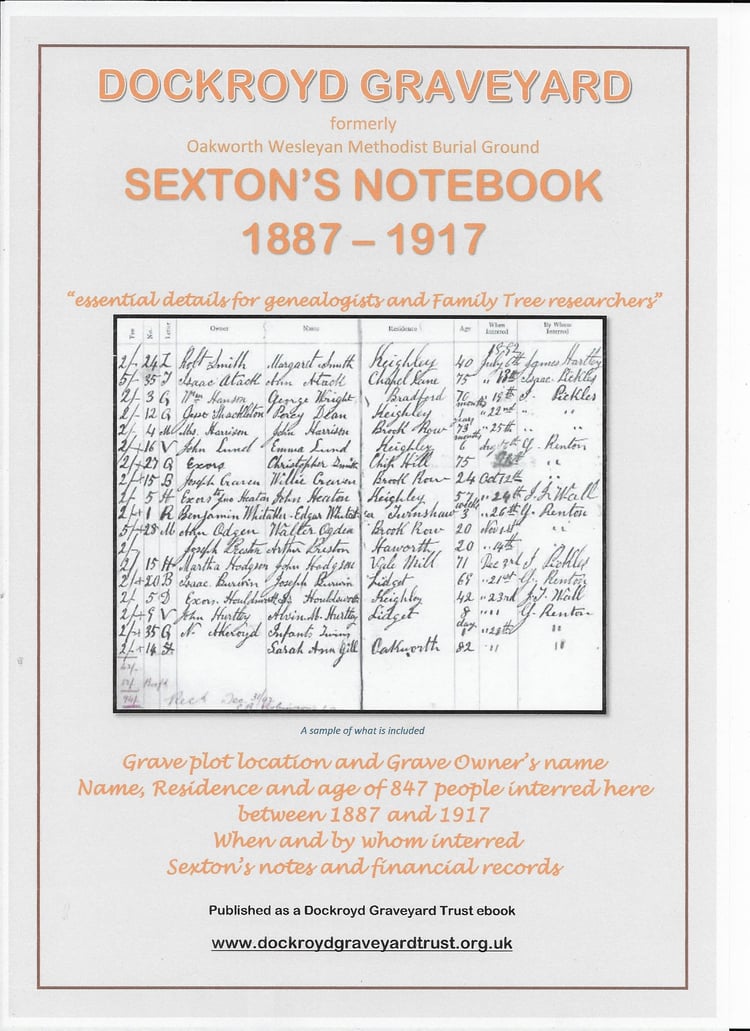 DOCKROYD GRAVEYARD
formerly
Oakworth Wesleyan Methodist Burial Ground
SEXTON'S NOTEBOOK
1887 – 1917
"essential details for genealogists and Family Tree researchers"
Fee No. Letter Owner Name Residence Age When Interred By Whom Interred
1892
2/- 24 L Robt Smith Margaret Smith Keighley 40 July 6th James Hartley
5/- 35 J Isaac Atack Ann Atack Chapel Lane 75 " 13th Isaac Pickles
2/- 3 G Wm Hanson George Wright Bradford 70 " 18th J. Pickles
2/- 12 G Jesse Shackleton Percy Dean Keighley months " 22nd " "
2/- 4 M Mrs. Harrison John Harrison Brook Row 73 years " 25th " "
2/- 16 V John Lund Emma Lund Keighley 6 months G. Renton
2/- 27 G Exors Christopher Smith Chip Hill 75 " "
2/- 15 B Joseph Craven Willie Craven Brook Row 24 Oct 12th " "
2/- 5 H Exors to Jno Heaton John Heaton Keighley 57 " 24th J. J. Wall
2/- 1 R Benjamin Whitaker Edgar Whitaker 3 weeks " 26th G. Renton
5/- 28 M Ann Odgen Walter Ogden Brook Row 20 Nov 1st " "
2/- Joseph Preston Arthur Preston Haworth 20 " 14th
2/- 15 H Martha Hodgson John Hodgson Vale Mill 71 Dec 3rd J. Pickles
2/- 20 B Isaac Burwin Joseph Burwin Lidget 69 " 21st G. Renton
2/- 5 D Exors. Houldsworth Houldsworth Keighley 42 " 23rd J. J. Wall
2/- 9 V John Hurtley Alvin M. Hurtley Lidget 8 " " G. Renton
2/- 35 G N. Akeroyd Infants Twins day 1 " 28th "
2/- 14 St Sarah Ann Gill Oakworth 82 " " "
Recd Dec 31/92
A sample of what is included
Grave plot location and Grave Owner's name
Name, Residence and age of 847 people interred here
between 1887 and 1917
When and by whom interred
Sexton's notes and financial records
Published as a Dockroyd Graveyard Trust ebook
www.dockroydgraveyardtrust.org.uk